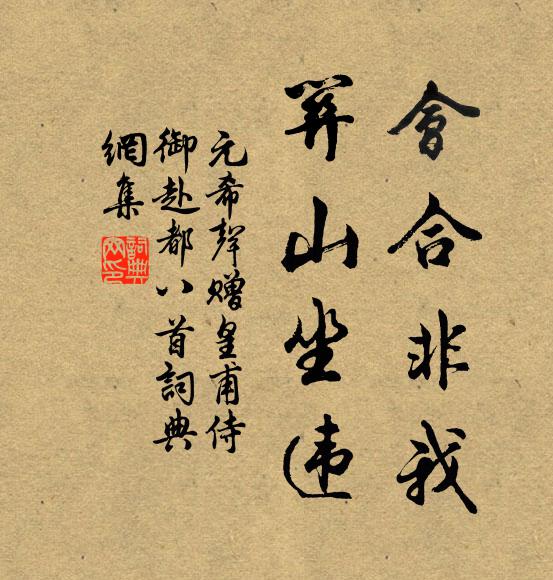 會合非我
關山坐違
元希聲贈皇甫侍
御赴都八首詞典
網集
詞典
網印